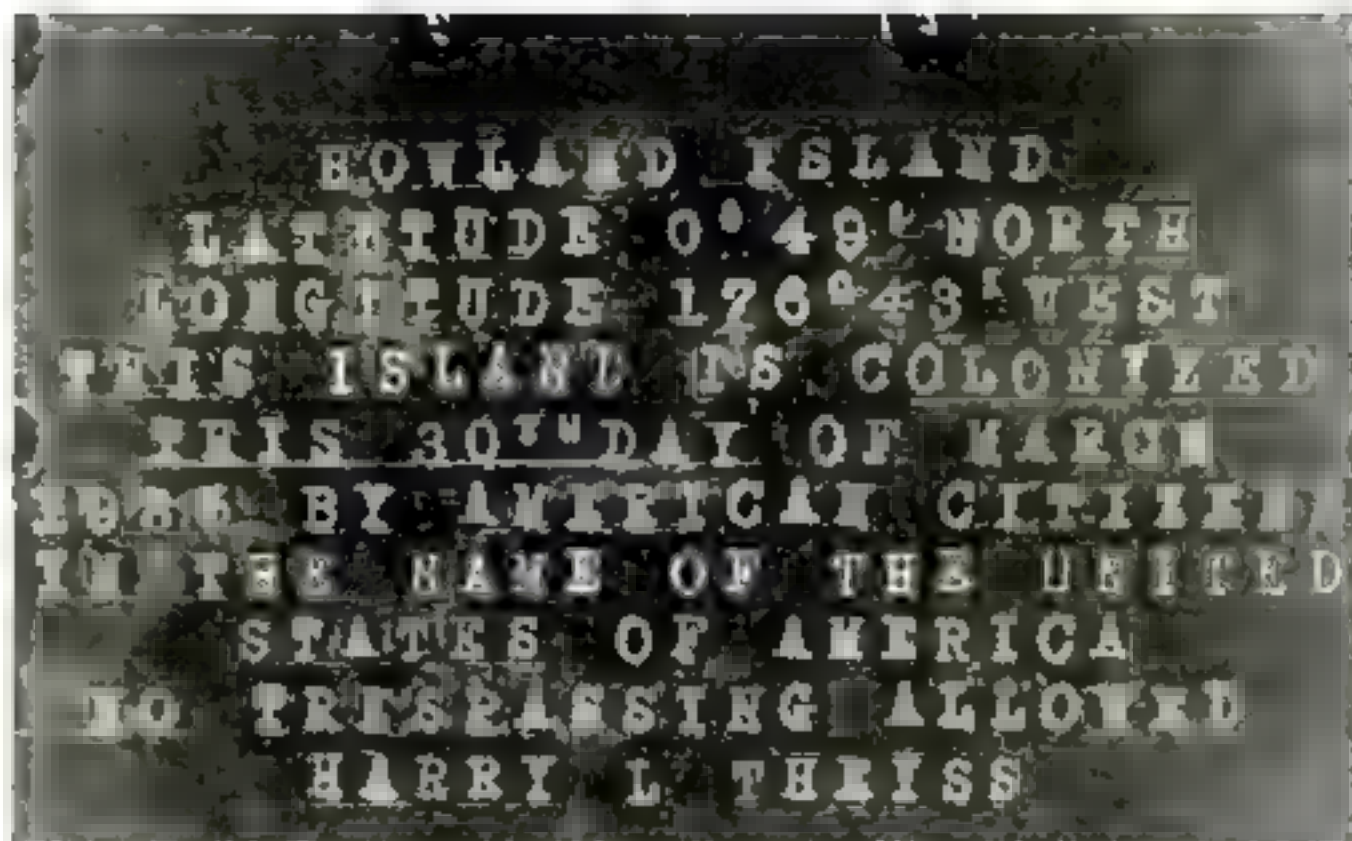 HOWLAND ISLAND
LATITUDE 0° 49' NORTH
LONGITUDE 176° 43' WEST
THIS ISLAND IS COLONIZED
THIS 30TH DAY OF MARCH
BY AMERICAN CITIZENS
IN THE NAME OF THE UNITED
STATES OF AMERICA
NO TRESPASSING ALLOWED
HARRY L THEISS